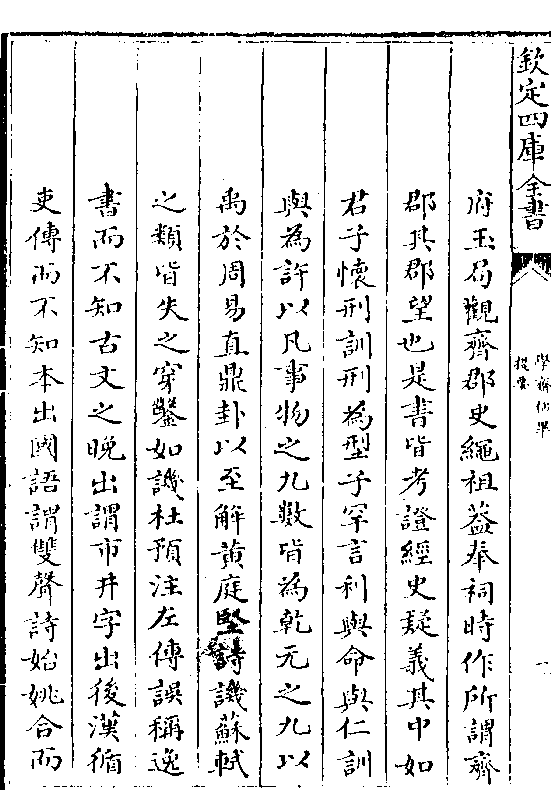 欽定四庫全書
學齋佔畢
提要
府玉局觀齊郡史繩祖葢奉祠時作所謂齊
郡其郡望也是書皆考證經史疑義其中如
君子懷刑訓刑為型子罕言利與命與仁訓
與為許以凡事物之九數皆為乾元之九以
禹於周易直鼎卦以至解黄庭堅詩譏蘇軾
之類皆失之穿鑿如譏杜預注左傳誤稱逸
書而不知古文之晚出謂市井字出後漢循
吏傳而不知本出國語謂雙聲詩始姚合而